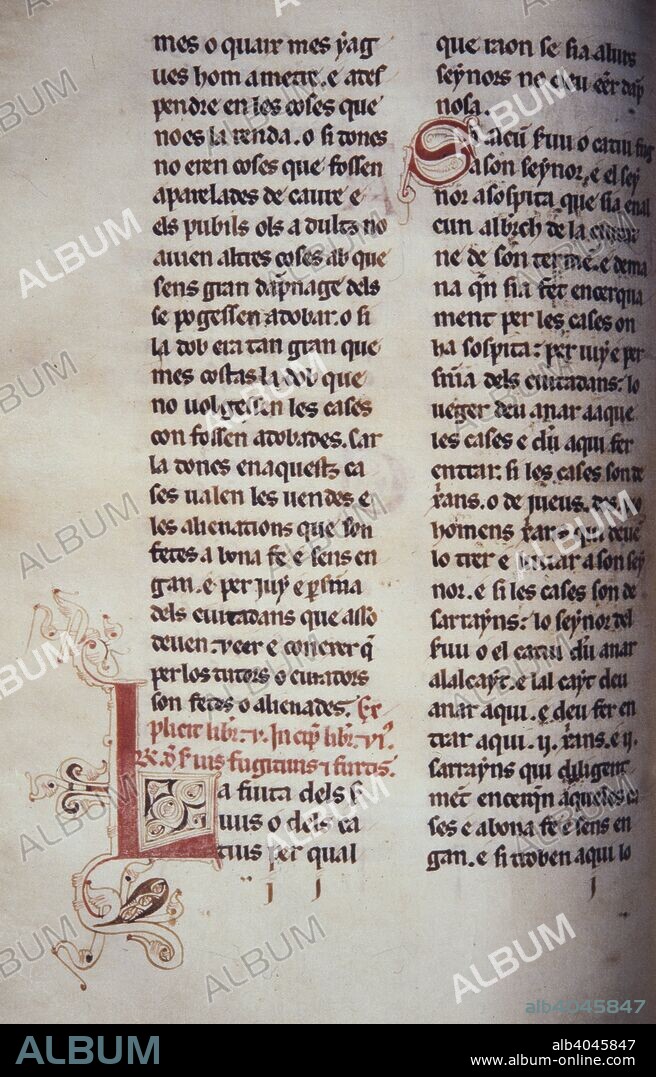 mes o quatr mes y̾ag
ues hom a metre. e a tes
pendre en les coses que
no es la renda. o si dones
no eren coses que fossen
aparelades de caure e
els pubils ols adultz no
auien altres coses ab que
sens gran dāp̄nage dels
se pogessen adobar. o si
la dob era tan gran que
mes costas la dob que
no uolgessen les cases
con fossen adobades. car
la dones en aquestz ca
ses ualen les uendes e
les alienations que son
fetes a bona fe e sens en
gan. e per iuy̾ e p̱sma
dels ciutadans que asso
deuen ueer e conexer q̄
per los tutors o curators
son fetes o alienades. Ex
plicit libr. v. Incip̄ libr. vi.
Rc̄. d̄ s̾uis fugitiuis ⁊ furtis.
La fuita dels s̾
uus o dels ca
tius per qual
que raon se sia a lurs
seynors no deu eēr dāp̄
nosa.
Si acū s̾uu o catiu fug
a son seynor. e el sey
nor a sospita que sia en al
cun alb̾ch de la ciutat
ne de son terme. e dema
na q̄n sia fet encerqua
ment per les cases on
ha sospita: per iuy e per
s̄ma dels ciutadans: lo
ueger deu anar a aque
les cases e d̄u aqui fer
entrar. si les cases son de
x̾ans. o de iueus.
homens x̾ans qui deuē
lo trer e liurar a son sey
nor. e si les cases son de
sarrayns: lo seynor del
s̾uu o el catiu d̄u anar
al alcayt. e lalcayt deu
anar aqui. e deu fer en
trar aqui .ij. x̾ans. e .ij.
sarrayns qui diligent
mēt encerq̄n aqueles ca
ses e a bona fe e sens en
gan. e si troben aqui lo
ALBUM
alb4045847
ALBUM
alb4045847
www.album-online.com